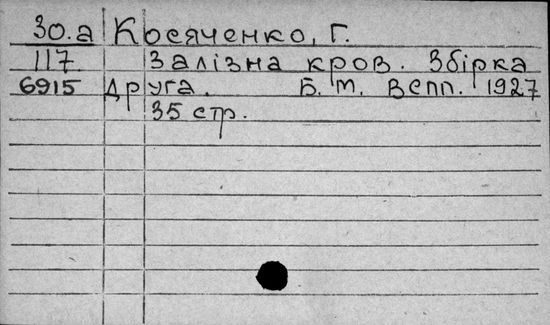 30.а Косяченко, Г.
117 Залізна кров. Збірка
6915 друга. Б. м. ВСПП. 1927
35 стр.